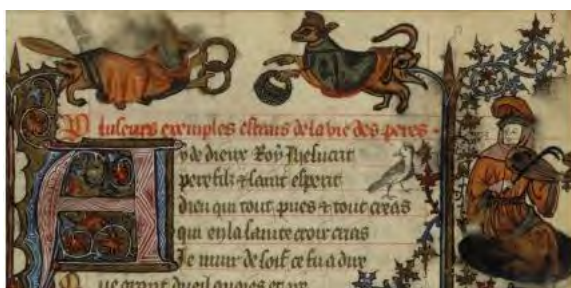 Pluseurs exemples estrais de la vie des peres
Ayde dieux Roy Jhesucrit
pere filz & saint esperit
dieu qui tout pues & tout creas
qui en la sainte croix crias
Je muir de soif ce fu a dire